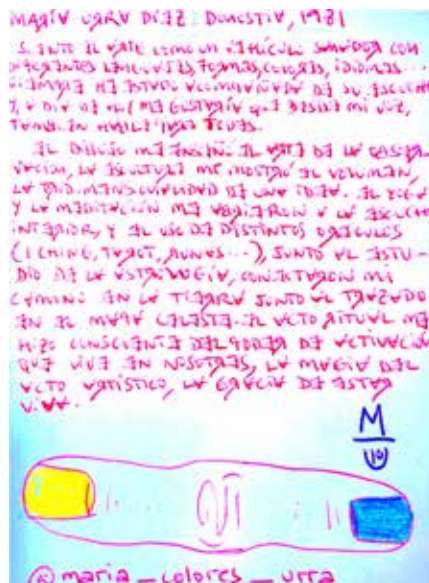 MARÍA URRA DÍEZ. DONOSTIA, 1981
SIENTO EL ARTE COMO UN VEHÍCULO SANADOR CON
DIFERENTES LENGUAJES, FORMAS, COLORES, IDIOMAS...
SIEMPRE HE ESTADO ACOMPAÑADA DE SU ESCUCHA
Y, A DÍA DE HOY ME GUSTARÍA QUE DESDE MI VOZ,
TAMBIÉN
EL DIBUJO ME ENSEÑÓ EL ARTE DE LA OBSER-
VACIÓN, LA ESCULTURA ME MOSTRÓ EL VOLUMEN,
LA TRIDIMENSIONALIDAD DE UNA IDEA. EL YOGA
Y LA MEDITACIÓN ME ABRIERON A LA ESCUCHA
INTERIOR, Y EL USO DE DISTINTOS ORÁCULOS
(I CHING, TAROT, RUNAS...), JUNTO AL ESTU-
DIO DE LA ASTROLOGÍA, CONECTARON MI
CAMINO EN LA TIERRA JUNTO AL TRAZADO
EN EL MAPA CELESTE. EL ACTO RITUAL ME
HIZO CONSCIENTE DEL PODER DE ACTIVACIÓN
QUE VIVE EN NOSOTRES, LA MAGIA DEL
ACTO ARTÍSTICO, LA GRACIA DE ESTAR
VIVA.
M
@maria_colores_urra